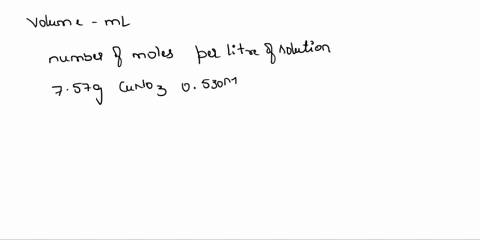 Volume - mL
number of moles per litre of solution
7.57g CuNO3 0.530M